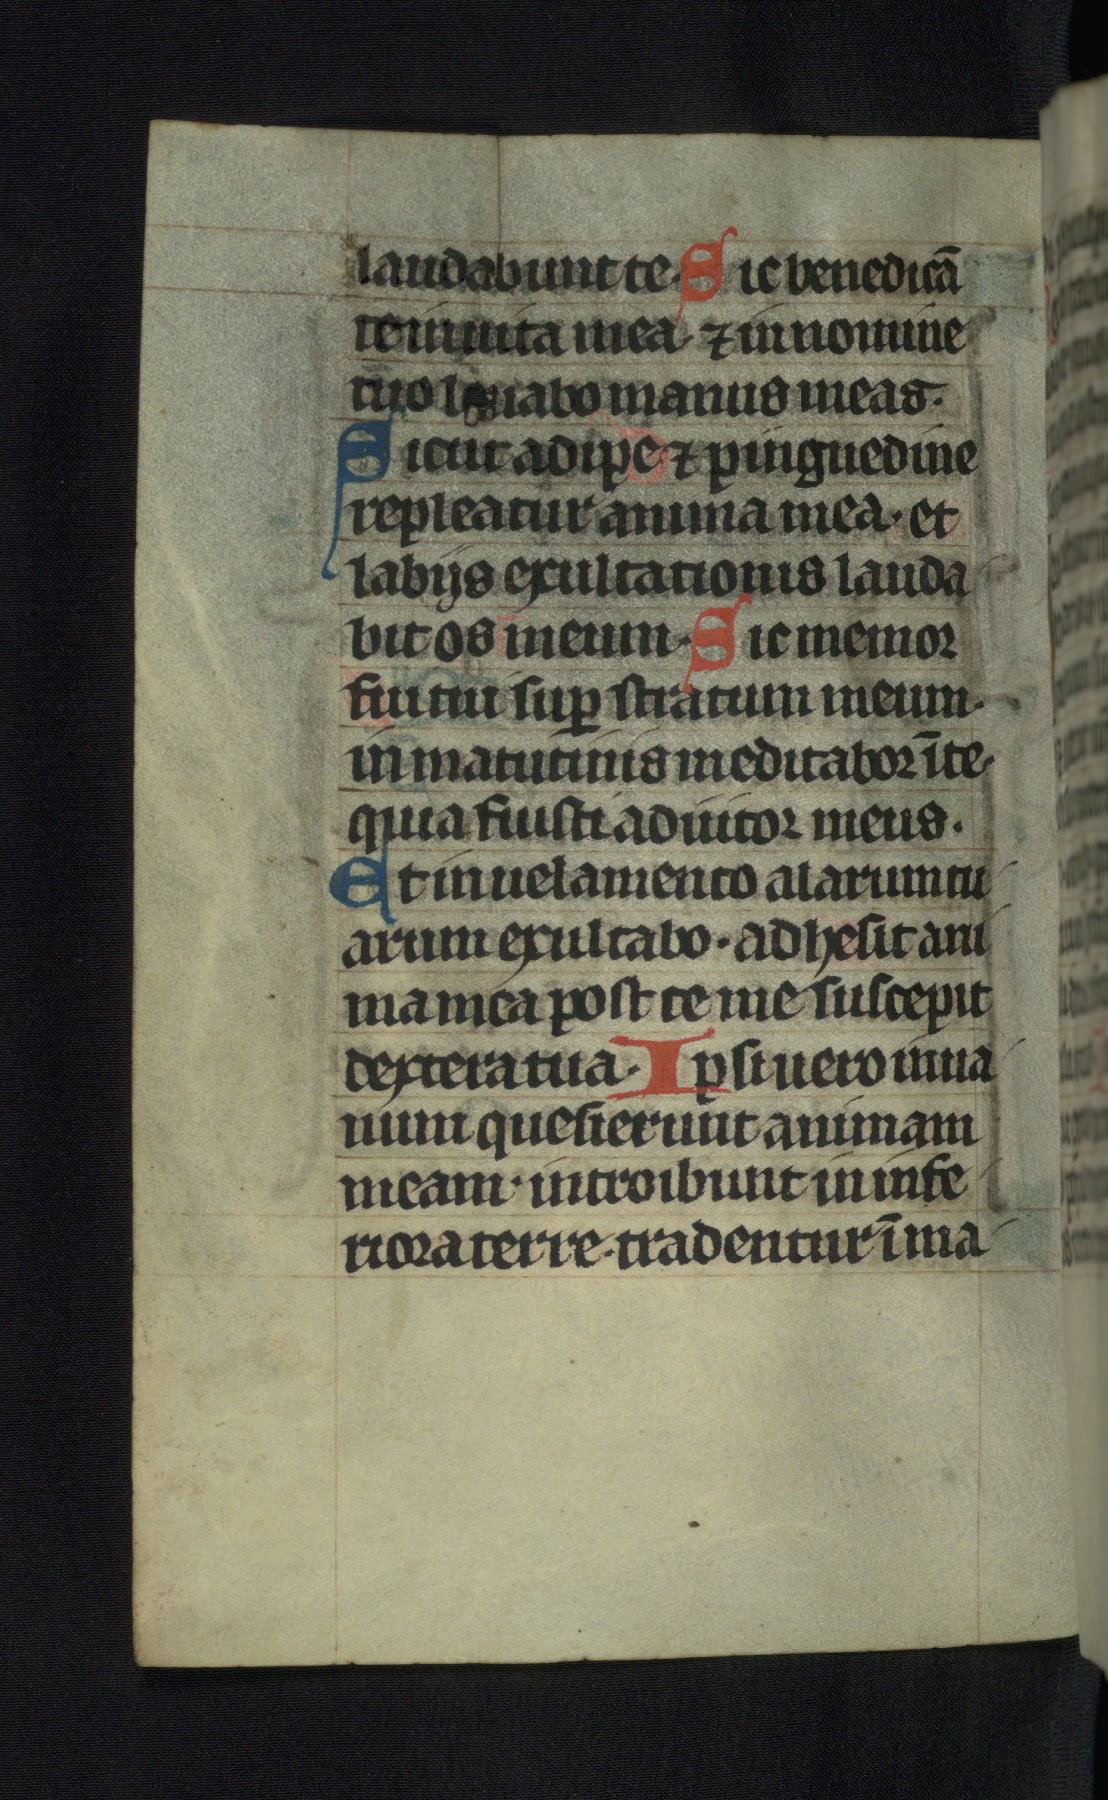 laudabunt te. Sic benedicā
te in uita mea ⁊ in nomine
tuo leuabo manus meas.
Sicut adipe ⁊ pinguedine
repleatur anima mea. et
labijs exultationis lauda
bit os meum. Sic memor
fui tui sup̄ stratum meum.
in matutinis meditabor ī te.
quia fuisti adiutor meus.
Et in uelamento alarum tu
arum exultabo. adhesit ani
ma mea post te me suscepit
dextera tua. Ipsi uero in ua
num quesierunt animam
meam. introibunt in infe
riora terre. tradentur ī ma